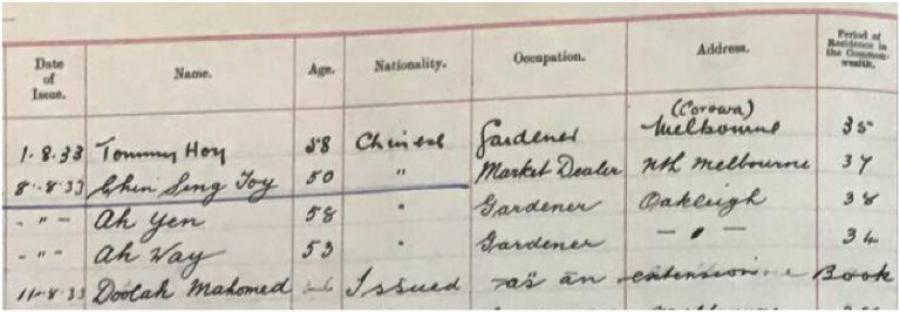 Date of Issue. Name. Age. Nationality. Occupation. Address. Period of Residence in the Common-wealth.
(Corowa)
1.8.33 Tommy Hoy 58 Chinese Gardener Melbourne 35
8.8.33 Chin Sing Toy 50 " Market Dealer Nth Melbourne 37
- " - Ah Yen 58 " Gardener Oakleigh 38
- " " Ah Way 53 " Gardener - " - 34
11.8.33 Doolah Mahomed Issued as an extension Book